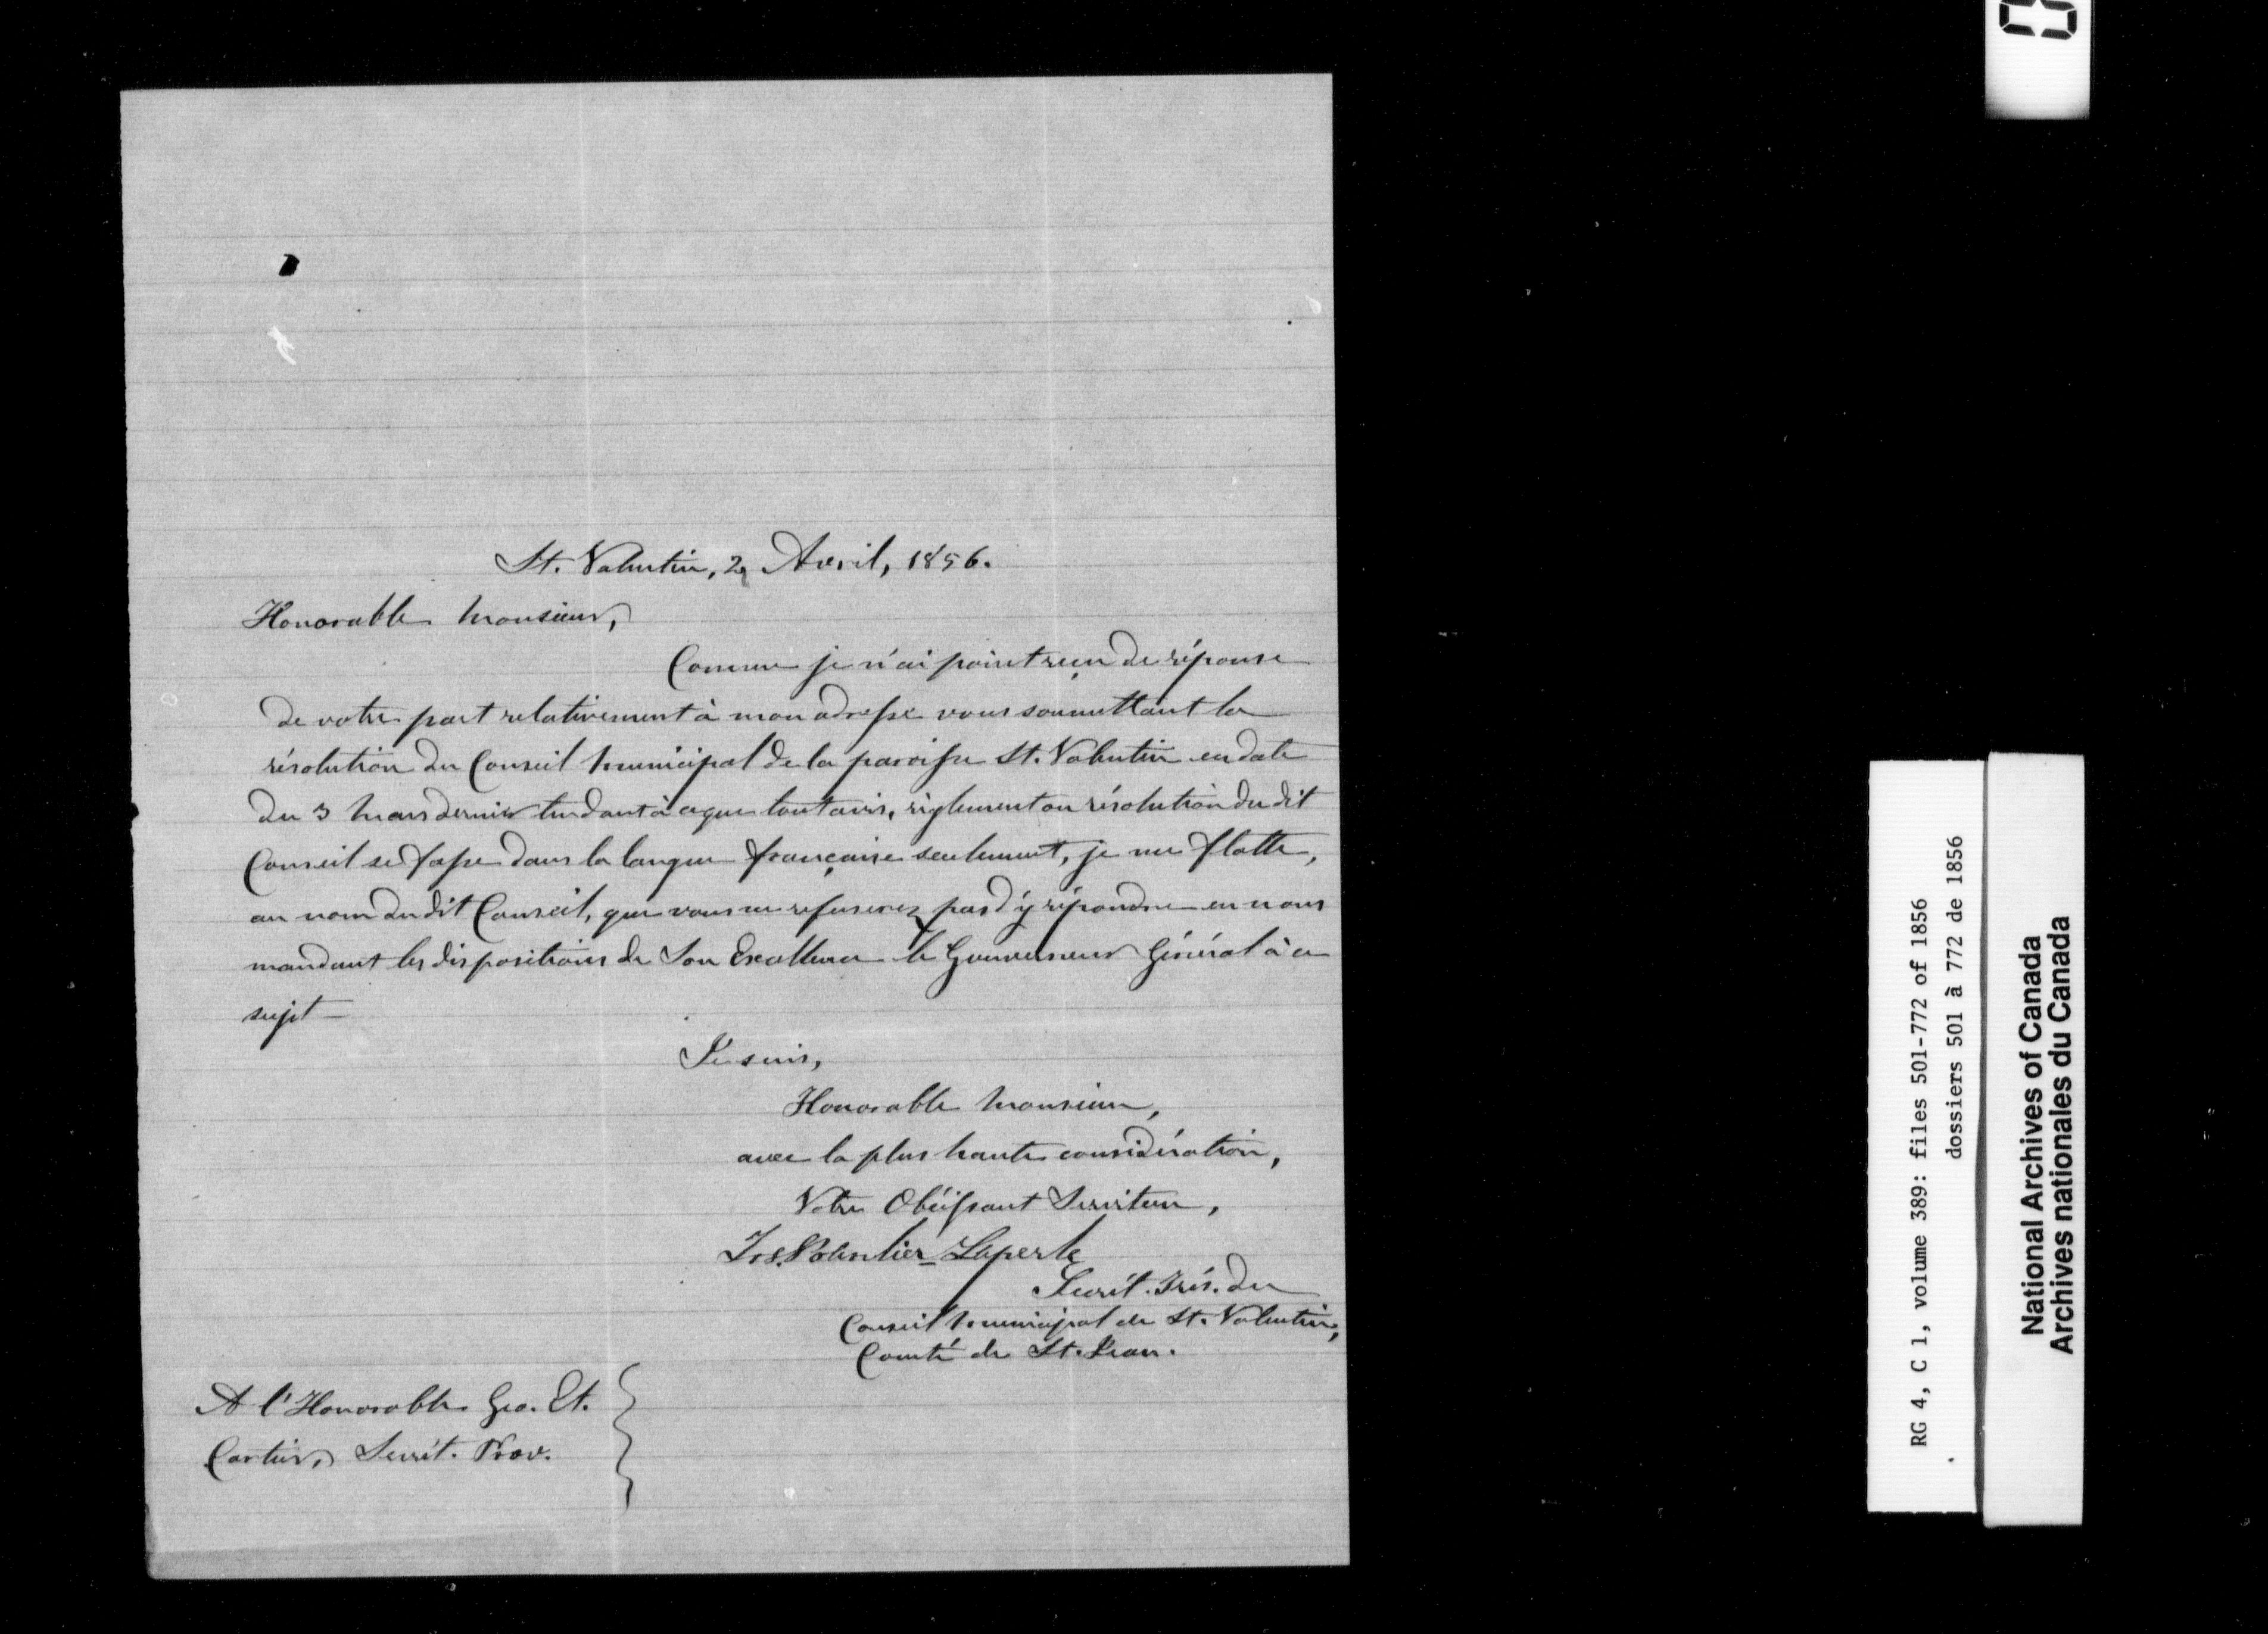 St. Valentin, 2 Avril, 1856.
Honorable Monsieur,
Comme je n'ai point reçu de réponse
de votre part relativement à mon adresse vous soumettant la
résolution du Conseil Municipal de la paroisse St. Valentin en date
du 3 Mars dernier tendant à ce que tout avis, règlement ou résolution du dit
Conseil se fasse dans la langue française seulement, je me flatte,
au nom du dit Conseil, que vous ne refuserez pas d'y répondre en nous
mandant les dispositions de Son Excellence le Gouverneur Général à ce
sujet
Je suis,
Honorable Monsieur,
avec la plus haute considération,
Votre Obéissant Serviteur,
Jos. Laperle
Secrét. Trés. du
Conseil Municipal de St. Valentin,
Comté de St. Jean.
A l'Honorable Geo. Et.
Cartier, Secrét. Prov.
RG 4, C 1, volume 389: files 501-772 of 1856
dossiers 501 à 772 de 1856
National Archives of Canada
Archives nationales du Canada